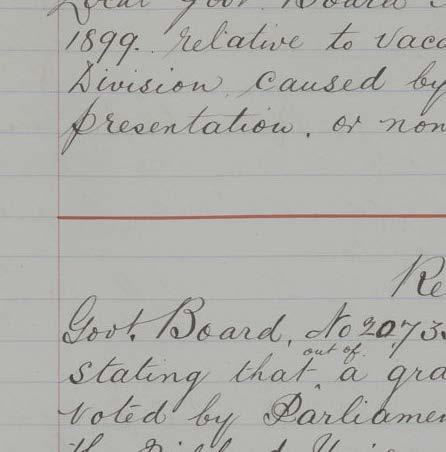 Local Govt. Board
1899. relative to Vaca
Division caused by
presentation. or non
Re
Govt. Board, No 2073
out of
stating that a gra
voted by Parliamen